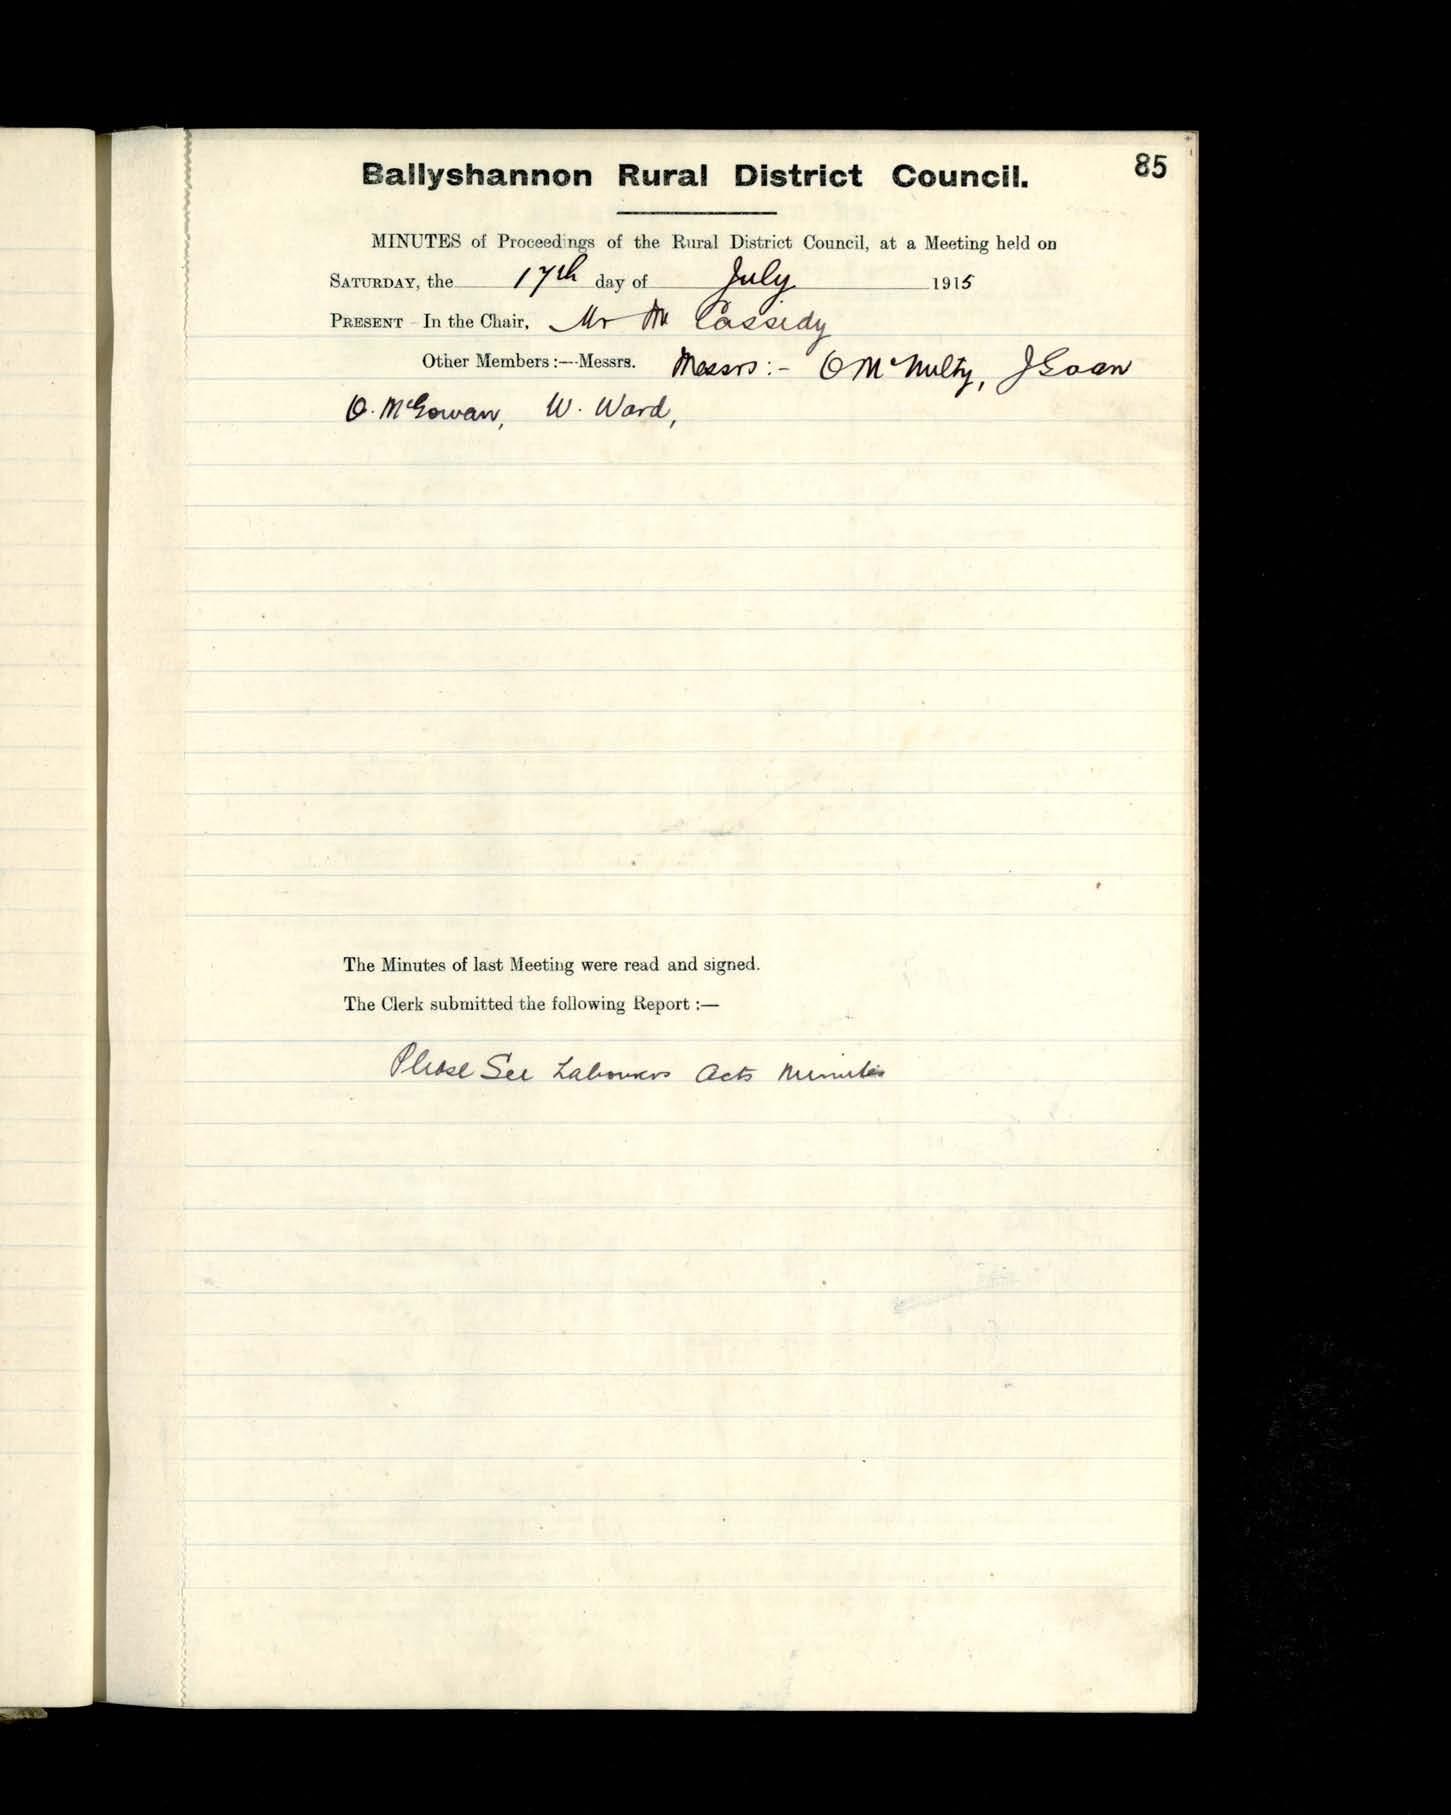 85
Ballyshannon Rural District Council.
MINUTES of Proceedings of the Rural District Council, at a Meeting held on
SATURDAY, the 17th day of July 1915
PRESENT - In the Chair, Mr M Cassidy
Other Members :—Messrs. Messrs :- O McNulty, J Goan
O. McGowan, W. Ward,
The Minutes of last Meeting were read and signed.
The Clerk submitted the following Report :—
Please See Labourers Acts Minutes